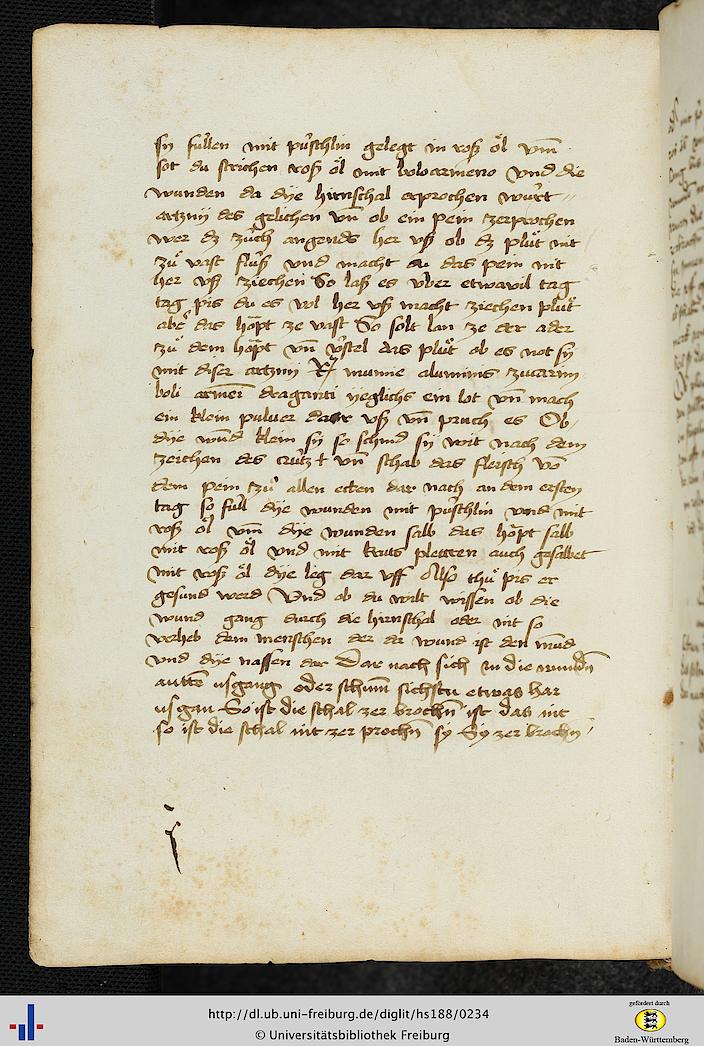 sy fullen mit púschlin gelegt in roß öl vnn
sot du strichen roß öl mit boloarmeno vnd die
wunden da dye hirnschal erprochen wurt
artznÿ des gelichen vn̄ ob ein pein zerprochen
wer dz zúch angends her vß ob dz plůt nit
zů vast fluß vnd macht du das pein nit
her vß ziechen So laß es vber etwavil tag
tag pis du es wol her vß macht ziechen plůt
aber das höpt ze vast So solt lan ze der ader
zů dem höpt vn̄ vstel das plůt ob es not sÿ
mit diser artznÿ Rx mumie aluminis zucarini
boli armeni draganti ÿeglichs ein lot vn̄ mach
ein klein puluer dar vß vn̄ pruch es Ob
dÿe wund klein sÿ so schnid sÿ wit nach dem
zeichen des crútz + vn̄ schab das fleisch vō
dem pein zů allen ecken dar nach an dem ersten
tag so full dÿe wunden mit púschlin vnd mit
roß öl vnn dÿe wunden salb das höpt salb
mit roß öl vnd mit kruts pletren auch gesalbet
mit roß öl dÿe leg dar vff Also thů pis er
gesund werd Vnd ob du wilt wissen ob die
wund gang durch die hirnschal oder nit so
verheb dem menschen der da wund ist den mund
vnd dÿe nassen dar Dar nach sich in die wundn̄
usgang oder schum sichstu etwas har
usgan So ist die schal zer brochn̄ ist das nit
so ist die schal nit zer prochn̄ sy Sy zer brochn̄
http://dl.ub.uni-freiburg.de/diglit/hs188/0234
© Universitätsbibliothek Freiburg
gefördert durch
Baden-Württemberg